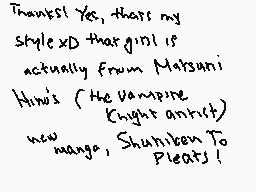 Thanks! Yes, thats my
style xD that girl is
actually from Matsuri
Hino's (the vampire
Knight artist)
new
manga, Shuriken To
Pleats!